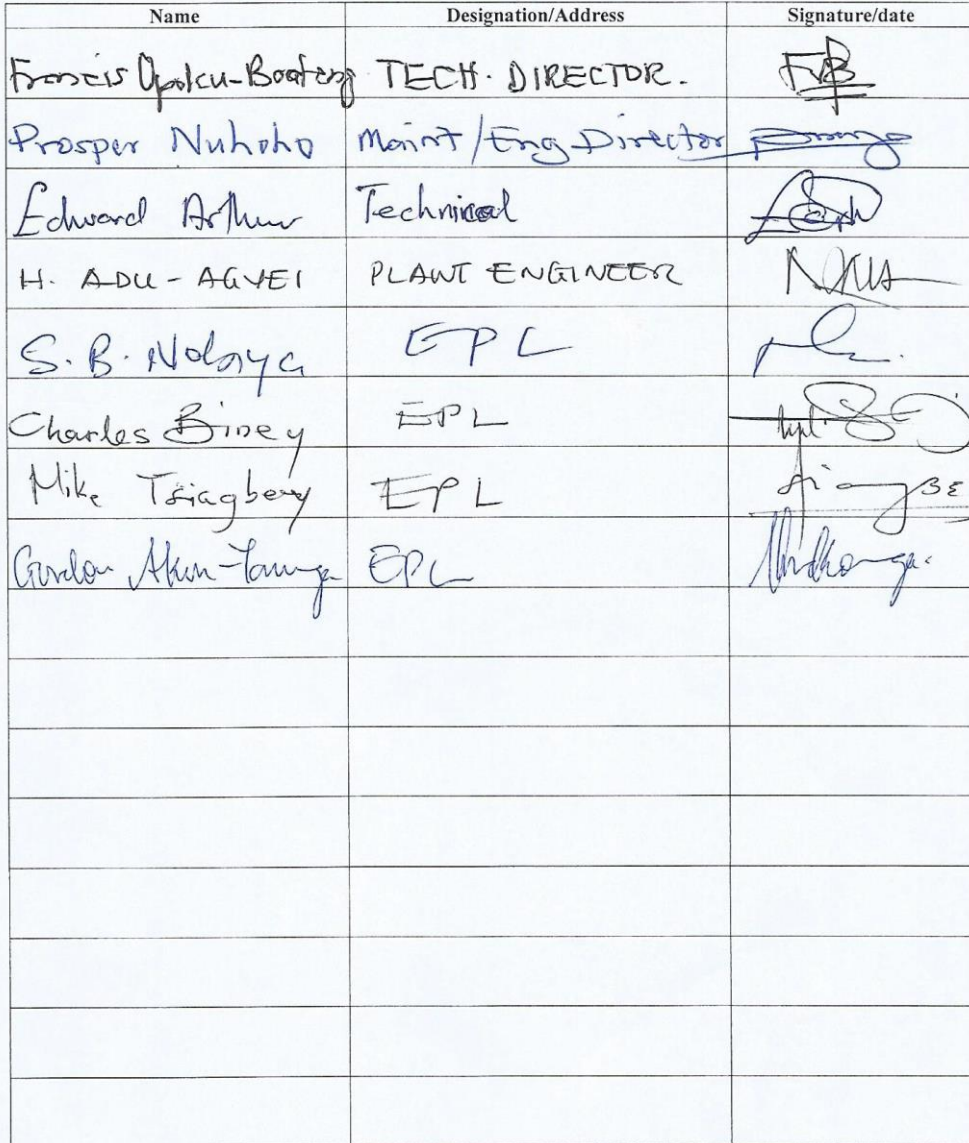 Name Designation/Address Signature/date
Francis Opoku-Boateng TECH. DIRECTOR.
Prosper Nuhoho Maint/Eng Director
Edward Arthur Technical
H. ADU-AGYEI PLANT ENGINEER
S. B. EPL
Charles Biney EPL
Mike Tsiagbey EPL
Gordon EPL